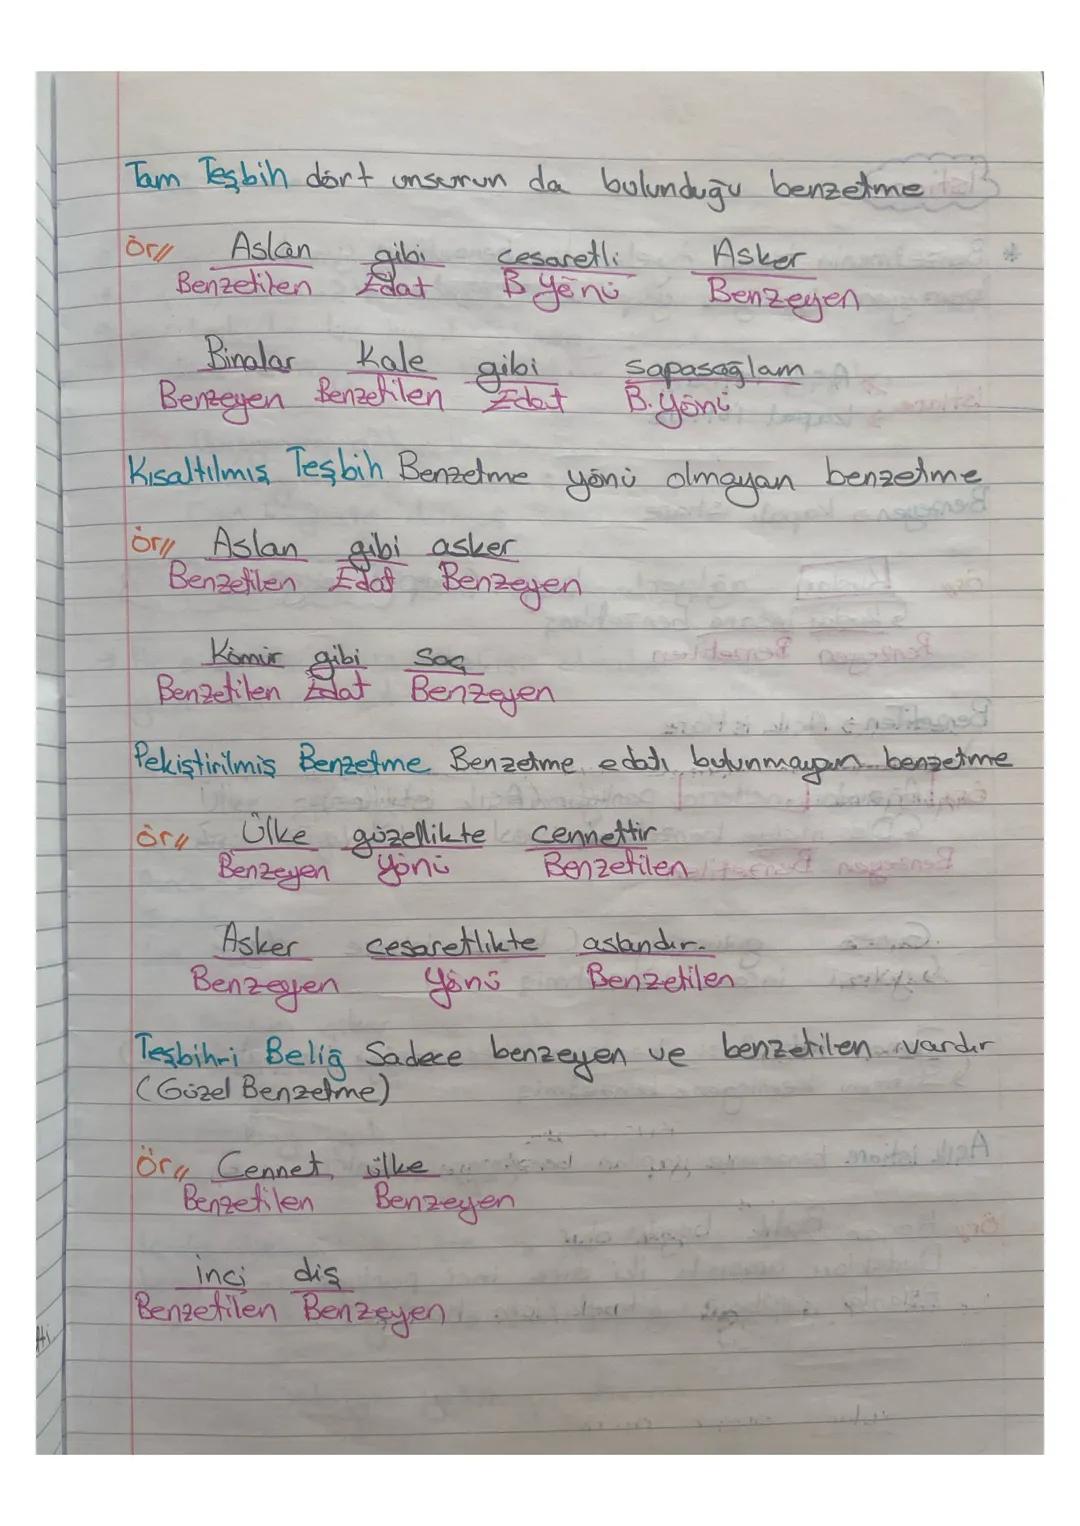 Tam Teşbih dört unsurun da bulunduğu benzetme
Ör// Aslan gibi cesaretli Asker
Benzetilen Edat B Yönü Benzeyen
Binalar Kale gibi sapasağlam
Benzeyen Benzetilen Edat B.yönü
Kısaltılmış Teşbih Benzetme yönü olmayan benzetme
Ör// Aslan gibi asker
Benzetilen Edat Benzeyen
Kömür gibi Saç
Benzetilen Edat Benzeyen
Pekiştirilmiş Benzetme Benzetme edatı bulunmayan benzetme
Ör// Ülke güzellikte cennettir
Benzeyen Yönü Benzetilen
Asker cesaretlikte aslandır.
Benzeyen Yönü Benzetilen
Teşbihri Beliğ Sadece benzeyen ve benzetilen vardır
(Güzel Benzetme)
Ör// Cennet ülke
Benzetilen Benzeyen
inci diş
Benzetilen Benzeyen